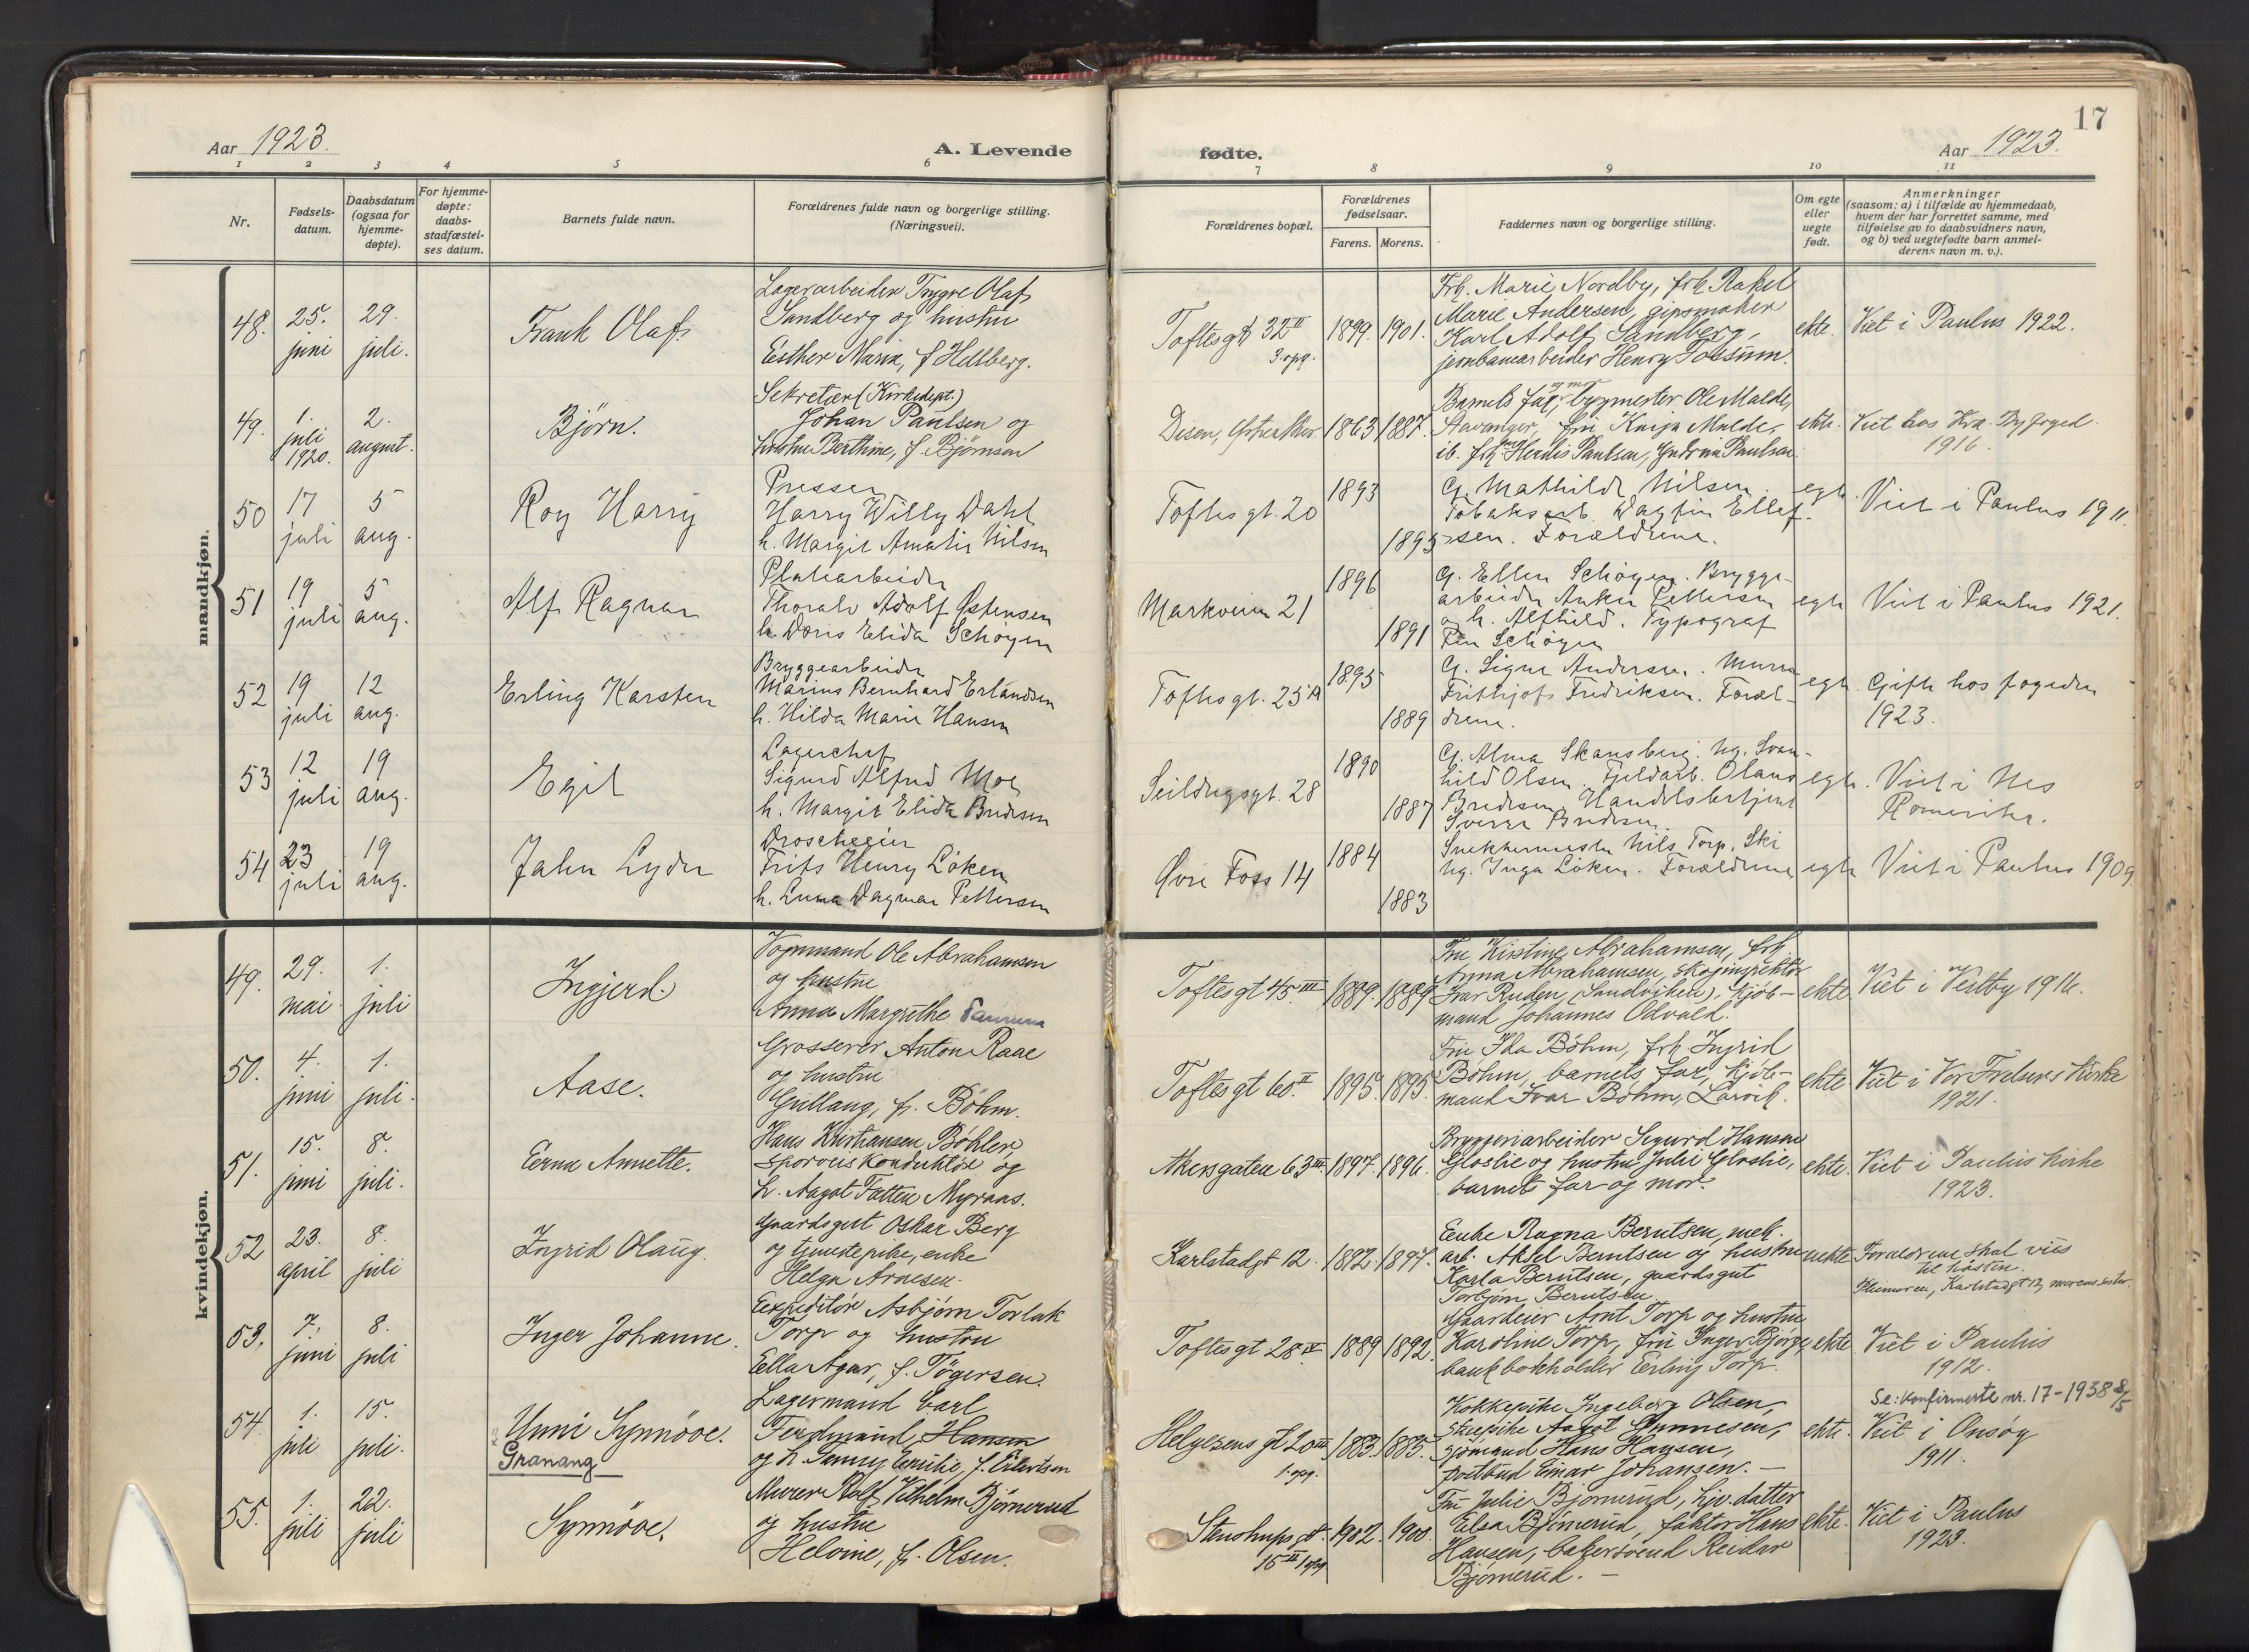 17
Aar 1923.
A. Levende
fødte.
Aar 1923.
1 2 3 4 5 6 7 8 9 10 11
Nr.
Fødsels-
datum.
Daabsdatum
(ogsaa for
hjemme-
døpte).
For hjemme-
døpte:
daabs-
stadfæstel-
ses datum.
Barnets fulde navn.
Forældrenes fulde navn og borgerlige stilling.
(Næringsvei).
Forældrenes bopæl.
Forældrenes
fødselsaar.
Farens. Morens.
Faddernes navn og borgerlige stilling.
Om egte
eller
uegte
født.
Anmerkninger
(saasom: a) i tilfælde av hjemmedaab,
hvem der har forrettet samme, med
tilføielse av to daabsvidners navn,
og b) ved uegtefødte barn anmel-
derens navn m. v.).
mandkjøn.
48.
25.
juni
29.
juli.
Frank Olaf.
Lagerarbeider Trygve Olaf
Sandberg og hustru
Esther Maria, f. Hellberg.
Toftesgt 32 II
3. opg.
1899. 1901.
Frk. Marie Nordby, frk Rakel
Marie Andersen, gipsmaker
Karl Adolf Sandberg,
jernbanearbeider Henry Fossum.
ekte.
Viet i Paulus 1922.
49.
1.
juli
1920.
2.
august.
Björn.
Sekretær (Kirkedept.)
Johan Paulsen og
hustru Berthine, f. Bjørnsen
Disen, Østre Aker.
1863 1887.
Barnets far, og mor bygmester Ole Malde,
Stavanger, fru Kaija Malde,
ib. frk Herdis Paulsen, Gudrun Paulsen.
ekte.
Viet hos Kra. Byfoged.
1916.
50
17
juli
5
aug.
Roy Harry
Presser
Harry Willy Dahl
h. Margit Amalie Nilsen
Toftesgt. 20
1893
1895
G. Mathilde Nilsen.
Tobaksarb. Dagfin Ellef-
sen. Forældrene.
egte.
Viet i Paulus 1911.
51
19
juli
5
aug.
Alf Ragnar
Platearbeider
Thoralv Adolf Østensen
h. Doris Elida Schøyen
Markveien 21
1896
1891
G. Ellen Schøyen. Brygge-
arbeider Anker Pettersen
og h. Alfhild. Typograf
Finn Schøyen
egte
Viet i Paulus 1921.
52
19
juli
12
aug.
Erling Karsten
Bryggearbeider
Marius Bernhard Erlandsen
h. Hilda Marie Hansen
Toftesgt. 25 A
1895
1889
G. Signe Andersen. Murer
Frithjof Fredriksen. Foræl-
drene.
egte.
Gifte hos fogden
1923.
53
12
juli
19
aug.
Egil
Lagerchef
Sigurd Alfred Moe
h. Margit Elida Bredesen
Seildugsgt. 28
1890
1887
G. Alma Skansberg. Ug. Svan-
hild Olsen. Fjeldarb. Olaus
Bredesen. Handelsbetjent
Sverre Bredesen.
egte.
Viet i Nes
Romerike.
54
23
juli
19
aug.
Jahn Lyder
Droscheeier
Frits Henry Löken
h. Luna Dagmar Pettersen
Øvre Foss 14
1884
1883
Snekkermester Nils Torp, Ski
Ug. Inga Löken. Forældrene
egte
Viet i Paulus 1909.
kvindekjøn.
49.
29.
mai
1.
juli
Ingjerd.
Vognmand Ole Abrahamsen
og hustru
Anna Margrethe
Toftesgt 45 III
1889. 1889
Fru Kirstine Abrahamsen, frk.
Anna Abrahamsen, skoginspektör
Ivar Ruden, (Sandviken), kjöb-
mand Johannes Odvald.
ekte.
Viet i Vestby 1916.
50.
4.
juni
1.
juli.
Aase.
Grosserer Anton Raae
og hustru
Gullaug, f. Böhm.
Toftesgt 60. II
1895. 1895.
Fru Ida Böhm, frk Ingrid
Böhm, barnets far, kjöb-
mand Ivar Böhm, Larvik.
ekte
Viet i Vor Frelsers kirke
1921.
51.
15.
juni
8.
juli.
Erna Annette.
Hans Kristiansen Böhler,
sporveiskonduktör og
h. Aagot Tatten Myraas.
Akersgaten 63 III
1897. 1896.
Bryggeriarbeider Sigurd Hansen
Gloslie og hustru Julie Gloslie,
barnets far og mor.
ekte.
Viet i Paulus kirke
1923.
52
23.
april
8.
juli
Ingrid Olaug.
Gaardsgut Oskar Berg
og tjenestepike, enke
Helga Arnesen.
Karlstadgt 12.
1872. 1897.
Enke Ragna Berntsen, mek.
arb. Aksel Berntsen og hustru
Karla Berntsen, gaardsgut
Torbjørn Berntsen.
uekte.
Forældrene skal vies
til høsten.
Karlstadgt 12, morens søster.
53.
7.
juni
8.
juli
Inger Johanne.
Expeditör Asbjørn Torlak
Torp og hustru
Ella Agar, f. Tögersen.
Toftesgt 28 IV
1889 1892.
Gaardeier Arnt Torp og hustru
Karoline Torp, fru Inger Bjørge,
bankbokholder Erling Torp.
ekte
Viet i Paulus
1912.
54.
1.
juli
15.
juli.
Unni Synnöve.
Granang
Lagermand Carl
Ferdinand Hansen
og h. Fanny Emilie, f. Eilertsen
Helgesens gt 20 III
1. opg.
1883. 1885.
Kokkepike Ingeborg Olsen,
stuepike Aagot Gunnesen,
sjömand Hans Hansen,
postbud Einar Johansen. —
ekte.
Se: konfirmerte nr. 17 - 1938 8/5
Viet i Onsøy
1911.
55.
1.
juli
22.
juli
Synnöve.
Murer Rolf Vilhelm Bjørnerud
og hustru
Helvine, f. Olsen.
Stenstrups gt.
15 II 1 opg
1902. 1900.
Fru Julie Bjørnerud, hjv. datter
Elsa Bjørnerud, faktor Hans
Hansen, bakersvend Reidar
Bjørnerud. —
ekte.
Viet i Paulus
1923.